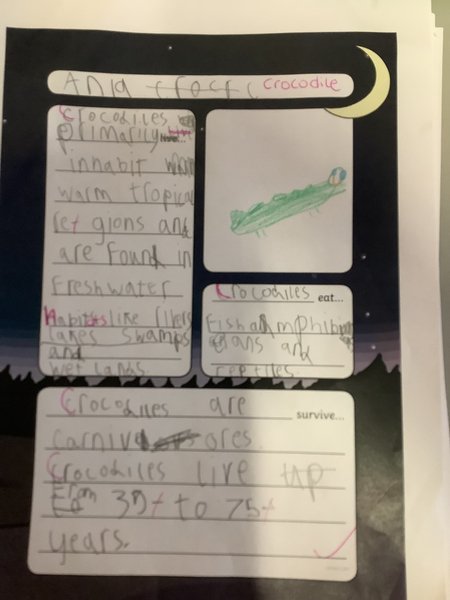 Crocodile
Crocodiles
primarily live...
inhabit
warm tropical
regions and
are found in
Freshwater
Habitats like rivers
lakes swamps
and
wetlands.
Crocodiles eat...
Fish Amphib
ians and
reptiles.
Crocodiles are survive...
carnivores.
Crocodiles live up
From 30+ to 75+
years.